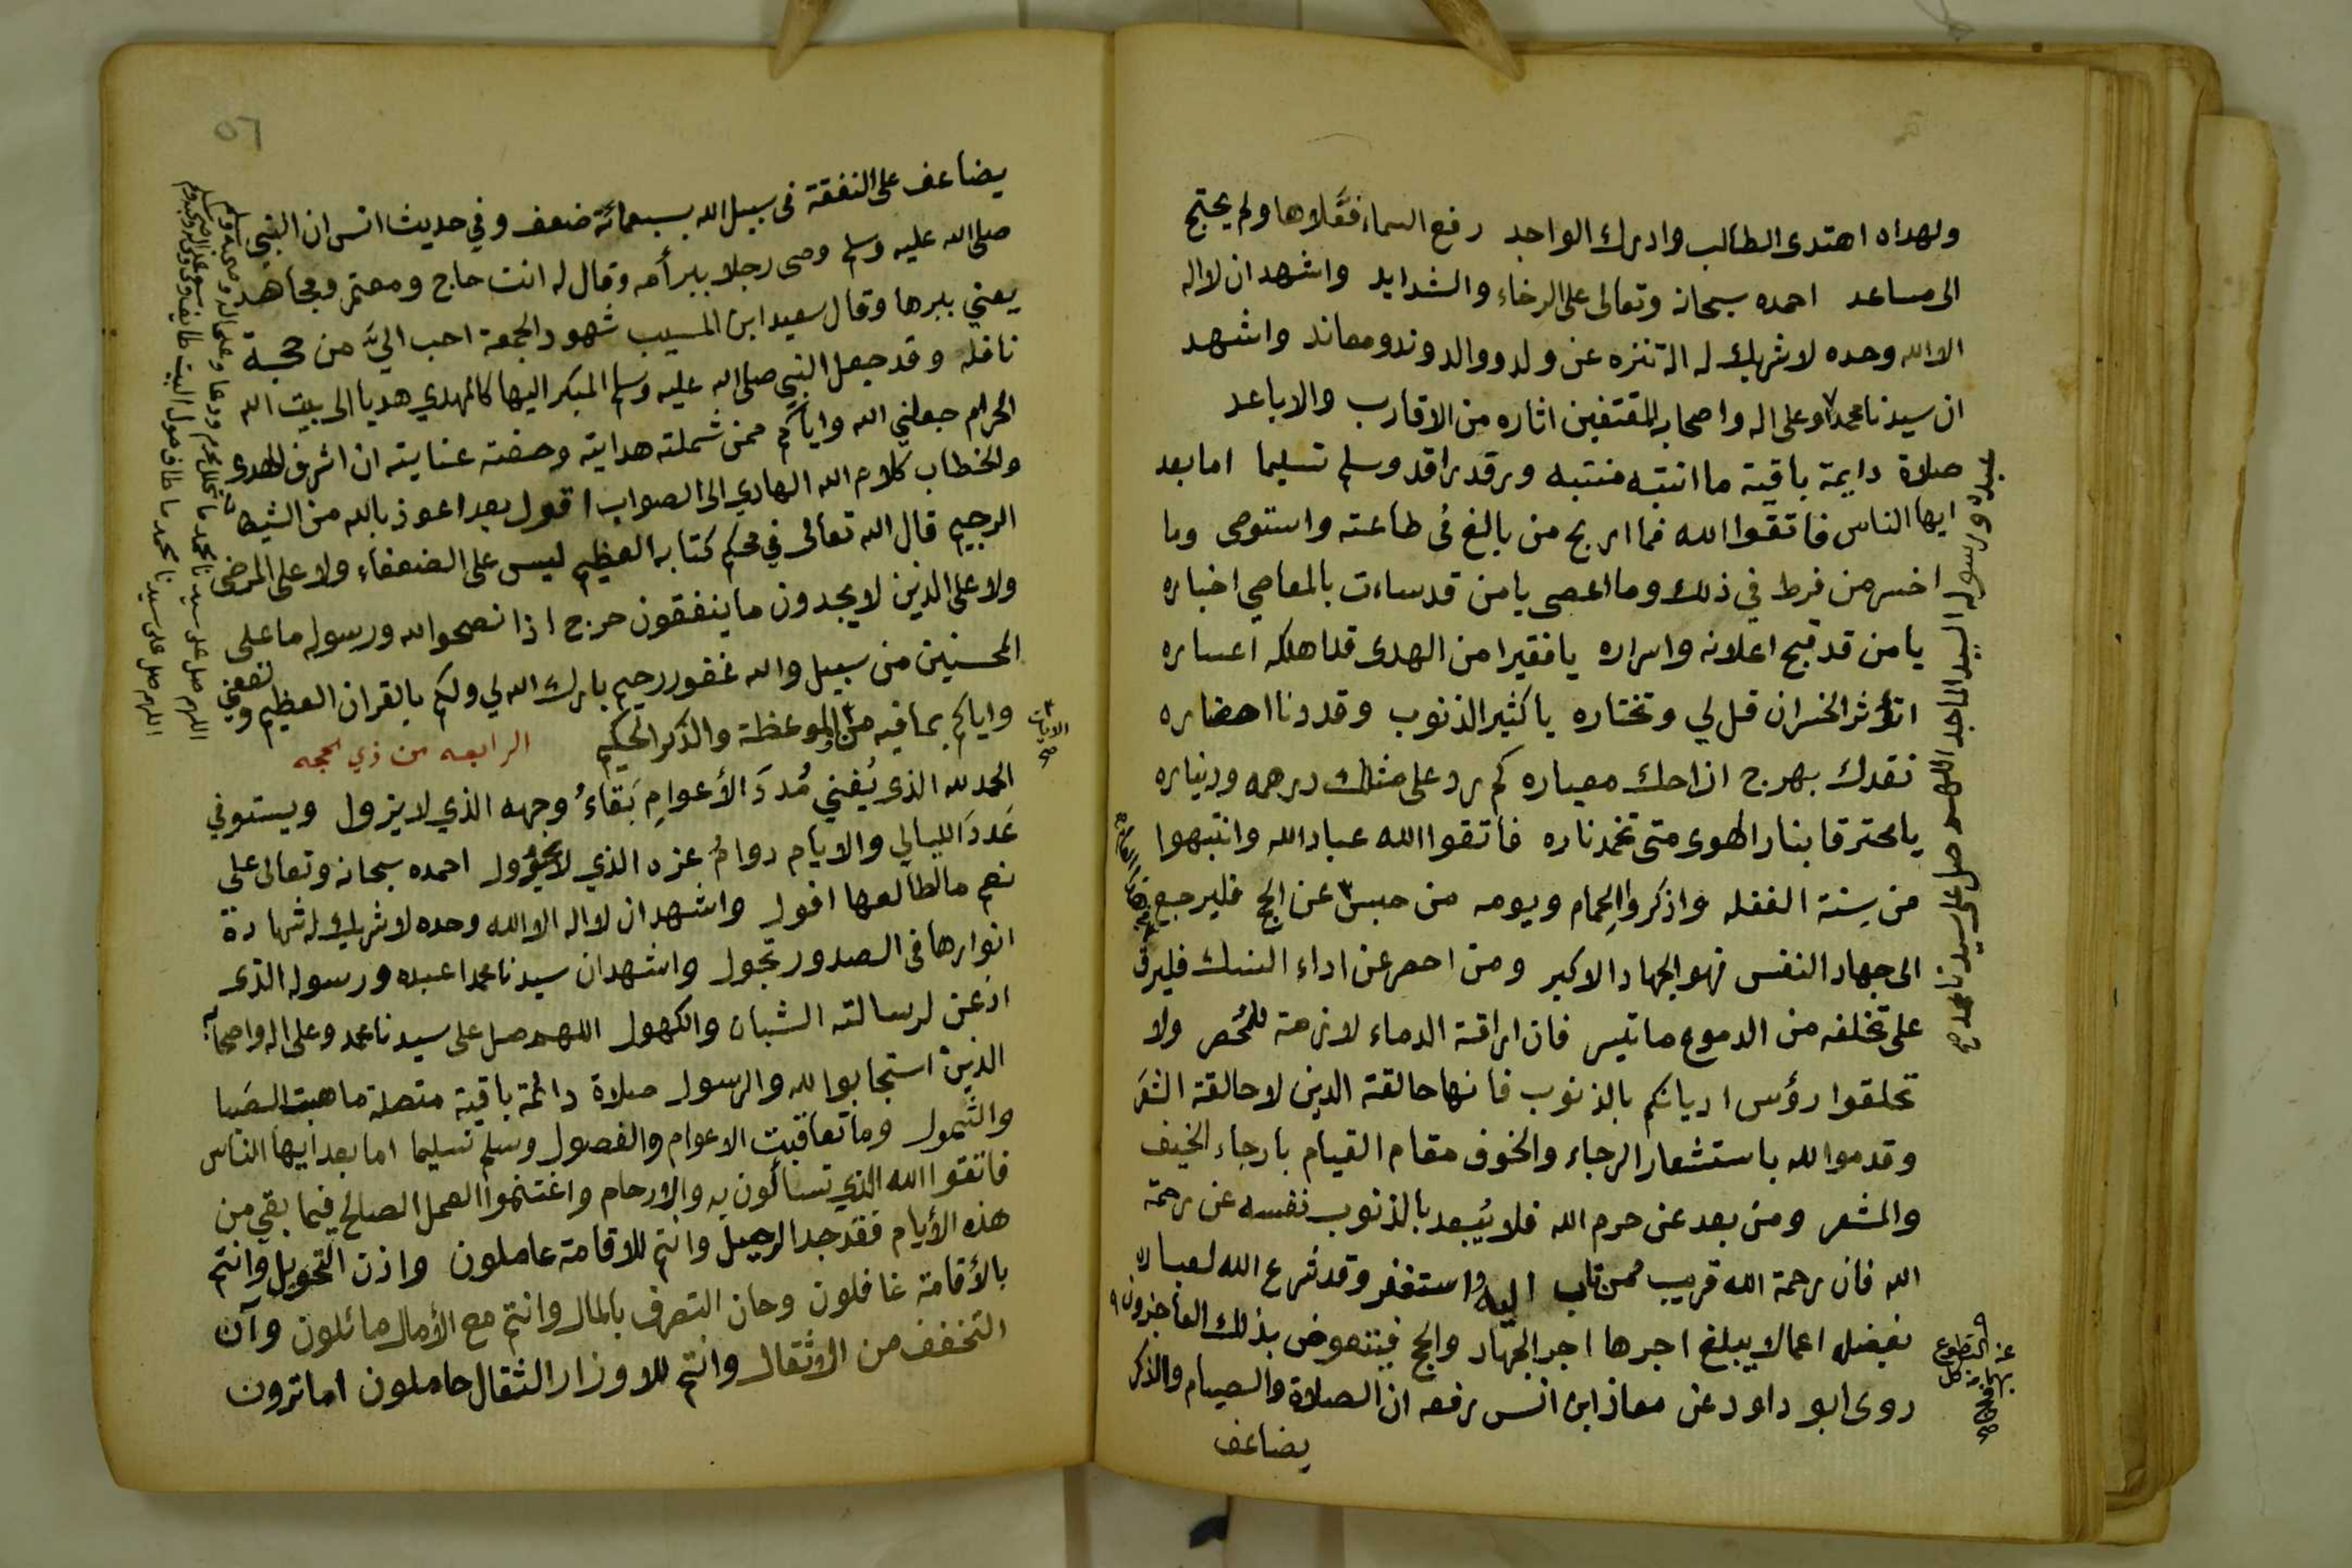 ولهداه اهتدى الطالب وادرك الواجد رفع السماء فعَلاها ولم يحتج
الى مساعد احمده سبحانه وتعالى على الرخاء والشدايد واشهد ان لا اله
الا الله وحده لا شريك له اله تنزه عن ولد ووالد وند ومعاند واشهد
ان سيدنا محمدا وعلى اله واصحابه المقتفين اثاره من الاقارب والاباعد
صلاة دايمة باقية ما انتبه منتبه ورقد راقد وسلم تسليما اما بعد
ايها الناس فاتقوا الله فما اربح من بالغ في طاعته واستوصى وما
اخسر من فرط في ذلك وما اعصى يا من قد ساءت بالمعاصي اخباره
يا من قد قبح اعلانه واسراره يا فقيرا من الهدى قد اهلكه اعساره
اتؤثر الخسران قل لي وتختاره يا كثير الذنوب وقد دنا احضاره
نقدك بهرج اذا حك معياره كم يرد على مثلك درهمه وديناره
يا محترقا بنار الهوى متى تخمد ناره فاتقوا الله عباد الله وانتبهوا
من سِنة الغفله واذكروا الحِمام ويومه من حبس عن الحج فليرجع
الى جهاد النفس فهو الجهاد الاكبر ومن احصر عن اداء النسك فليرق
على تخلفه من الدموع ما تيسر فان اراقة الدماء لازمة للمُحصر ولا
تحلقوا رؤس اديانكم بالذنوب فانها حالقة الدين لا حالقة الشعَر
وقدموا لله باستشعار الرجاء والخوف مقام القيام بارجاء الخيف
والمشعر ومن بعد عن حرم الله فلا يُبعد بالذنوب نفسه عن رحمة
الله فان رحمة الله قريب ممن تاب اليه واستغفر وقد شرع الله لعباده
بفضله اعمالا يبلغ اجرها اجر الجهاد والحج فيتعوض بذلك العاجزون
روى ابو داود عن معاذ ابن انس رفعه ان الصلاة والصيام والذكر
يضاعف
عبده ورسوله السيد الماجد اللهم صل على سيدنا محمد صح
عن التطوع
٥٦
يضاعف على النفقة في سبيل الله بسبعمائة ضعف وفي حديث انس ان النبي
صلى الله عليه وسلم وصى رجلا ببر أمه وقال له انت حاج ومعتمر ومجاهد
يعني ببرها وقال سعيد ابن المسيب شهود الجمعة احب اليَّ من حجة
نافله وقد جعل النبي صلى الله عليه وسلم المبكر اليها كالمهدي هديا الى بيت الله
الحرام جعلني الله واياكم ممن شملته هدايته وحفته عنايته ان اشرف الهدى
والخطاب كلام الله الهادي الى الصواب اقول بعد اعوذ بالله من الشيطان
الرجيم قال الله تعالى في محكم كتابه العظيم ليس على الضعفاء ولا على المرضى
ولا على الذين لا يجدون ما ينفقون حرج اذا نصحوا لله ورسوله ما على
المحسنين من سبيل والله غفور رحيم بارك الله لي ولكم بالقران العظيم ونفعني
واياكم بما فيه من الموعظة والذكر الحكيم الرابعه من ذي الحجه
الحمد لله الذي يُفني مُدَدَ الأعوامِ بَقاءُ وجهه الذي لا يزول ويستوفي
عَددَ الليالي والايام دوامُ عزه الذي لا يحُول احمده سبحانه وتعالى على
نعم ما لطالعها افول واشهد ان لا اله الا الله وحده لا شريك له شهادة
انوارها في الصدور تجول واشهد ان سيدنا محمدا عبده ورسوله الذي
اذعن لرسالته الشبان والكهول اللهم صل على سيدنا محمد وعلى اله واصحابه
الذين استجابوا لله والرسول صلاة دائمة باقية متصلة ما هبت الصَبا
والشمول وما تعاقبت الاعوام والفصول وسلم تسليما اما بعد ايها الناس
فاتقوا الله الذي تساءلون به والارحام واغتنموا العمل الصالح فيما بقي من
هذه الأيام فقد جد الرحيل وانتم للاقامة عاملون واذن التحويل وانتم
بالأقامة غافلون وحان التصرف بالمال وانتم مع الأمال مائلون وآن
التخفف من الاثقال وانتم للاوزار الثقال حاملون اما ترون
الايات
صح
اللهم صل على سيدنا محمد ما تحلل محرم ودعا وعلى اله وصحبه وسلم
اللهم صل على سيدنا محمد ما طاف حول البيت طايف